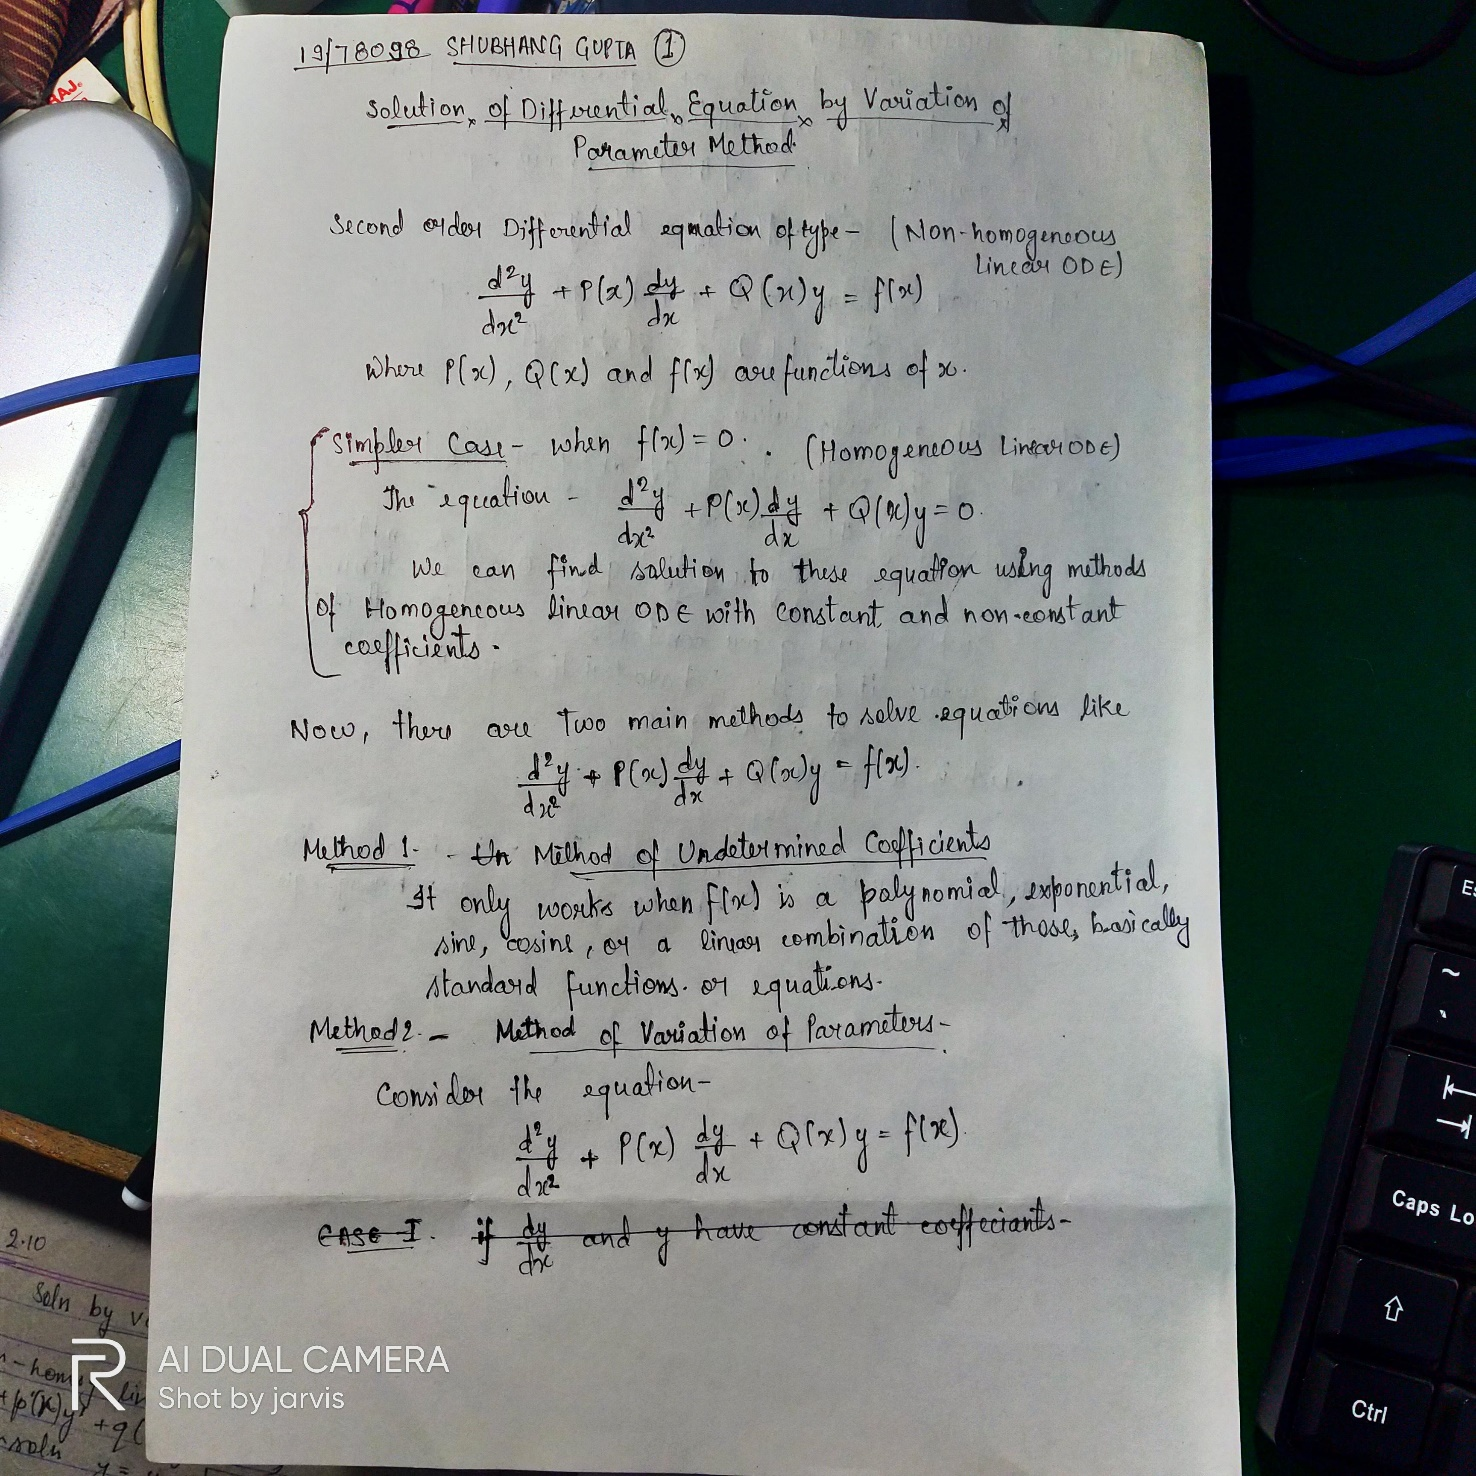 19/78098 SHUBHANG GUPTA ①
Solution of Differential Equation by Variation of
Parameter Method
Second order Differential equation of type - (Non-homogeneous
linear ODE)
d²y/dx² + P(x) dy/dx + Q(x)y = f(x)
where P(x), Q(x) and f(x) are functions of x.
Simpler Case - when f(x) = 0. (Homogeneous Linear ODE)
The equation - d²y/dx² + P(x) dy/dx + Q(x)y = 0.
We can find solution to these equation using methods
of Homogeneous linear ODE with constant and non-constant
coefficients.
Now, there are Two main methods to solve equations like
d²y/dx² + P(x) dy/dx + Q(x)y = f(x).
Method 1. - Un Method of Undetermined Coefficients
It only works when f(x) is a polynomial, exponential,
sine, cosine, or a linear combination of those, basically
standard functions. or equations.
Method 2. - Method of Variation of Parameters -
Consider the equation -
d²y/dx² + P(x) dy/dx + Q(x)y = f(x).
CASE I. if dy/dx and y have constant coeffeciants -
AJ.
2.10
Soln by v
soln
y =
R AI DUAL CAMERA
Shot by jarvis
Es
~
Caps Lo
Ctrl